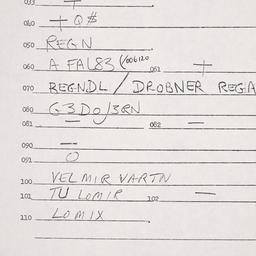 033 +
040 + Q $
050 REGN
060 A FAL83 (/006120 061 +
070 REGNDL / DROBNER REGA
080 G3DO/3RN
081 — 082 —
090 —
091 O
100 VELMIR VARTN
101 TU LOMIR 102 —
110 LOMIX